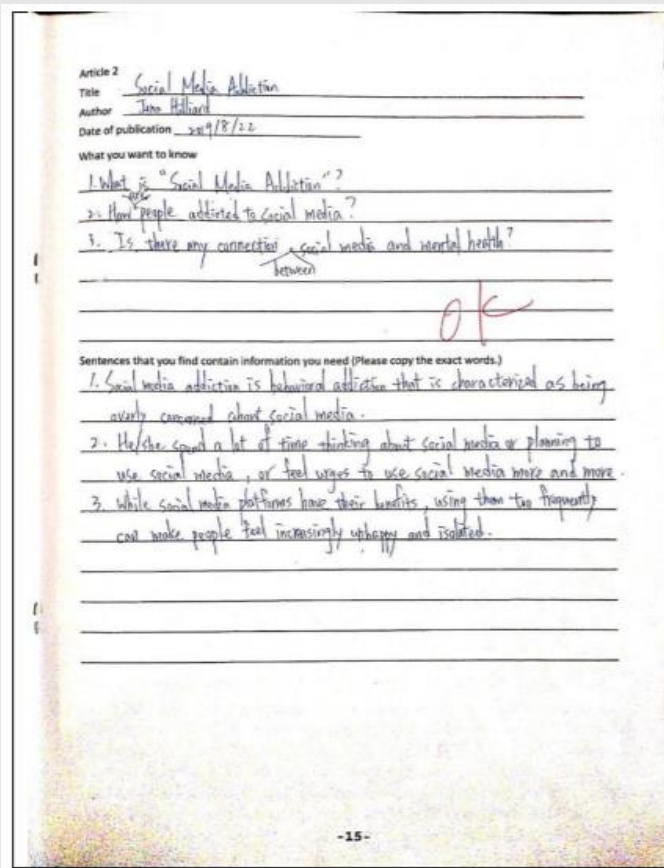 Article 2
Title Social Media Addiction
Author Jena Hilliard
Date of publication 2019/8/22
What you want to know
1. What is "Social Media Addiction"?
are
2. How people addicted to social media?
3. Is there any connection social media and mental health?
between
ok
Sentences that you find contain information you need (Please copy the exact words.)
1. Social media addiction is behavioral addiction that is characterized as being
overly concerned about social media.
2. He/she spend a lot of time thinking about social media or planning to
use social media, or feel urges to use social media more and more.
3. While social media platforms have their benefits, using them too frequently
can make people feel increasingly unhappy and isolated.
-15-